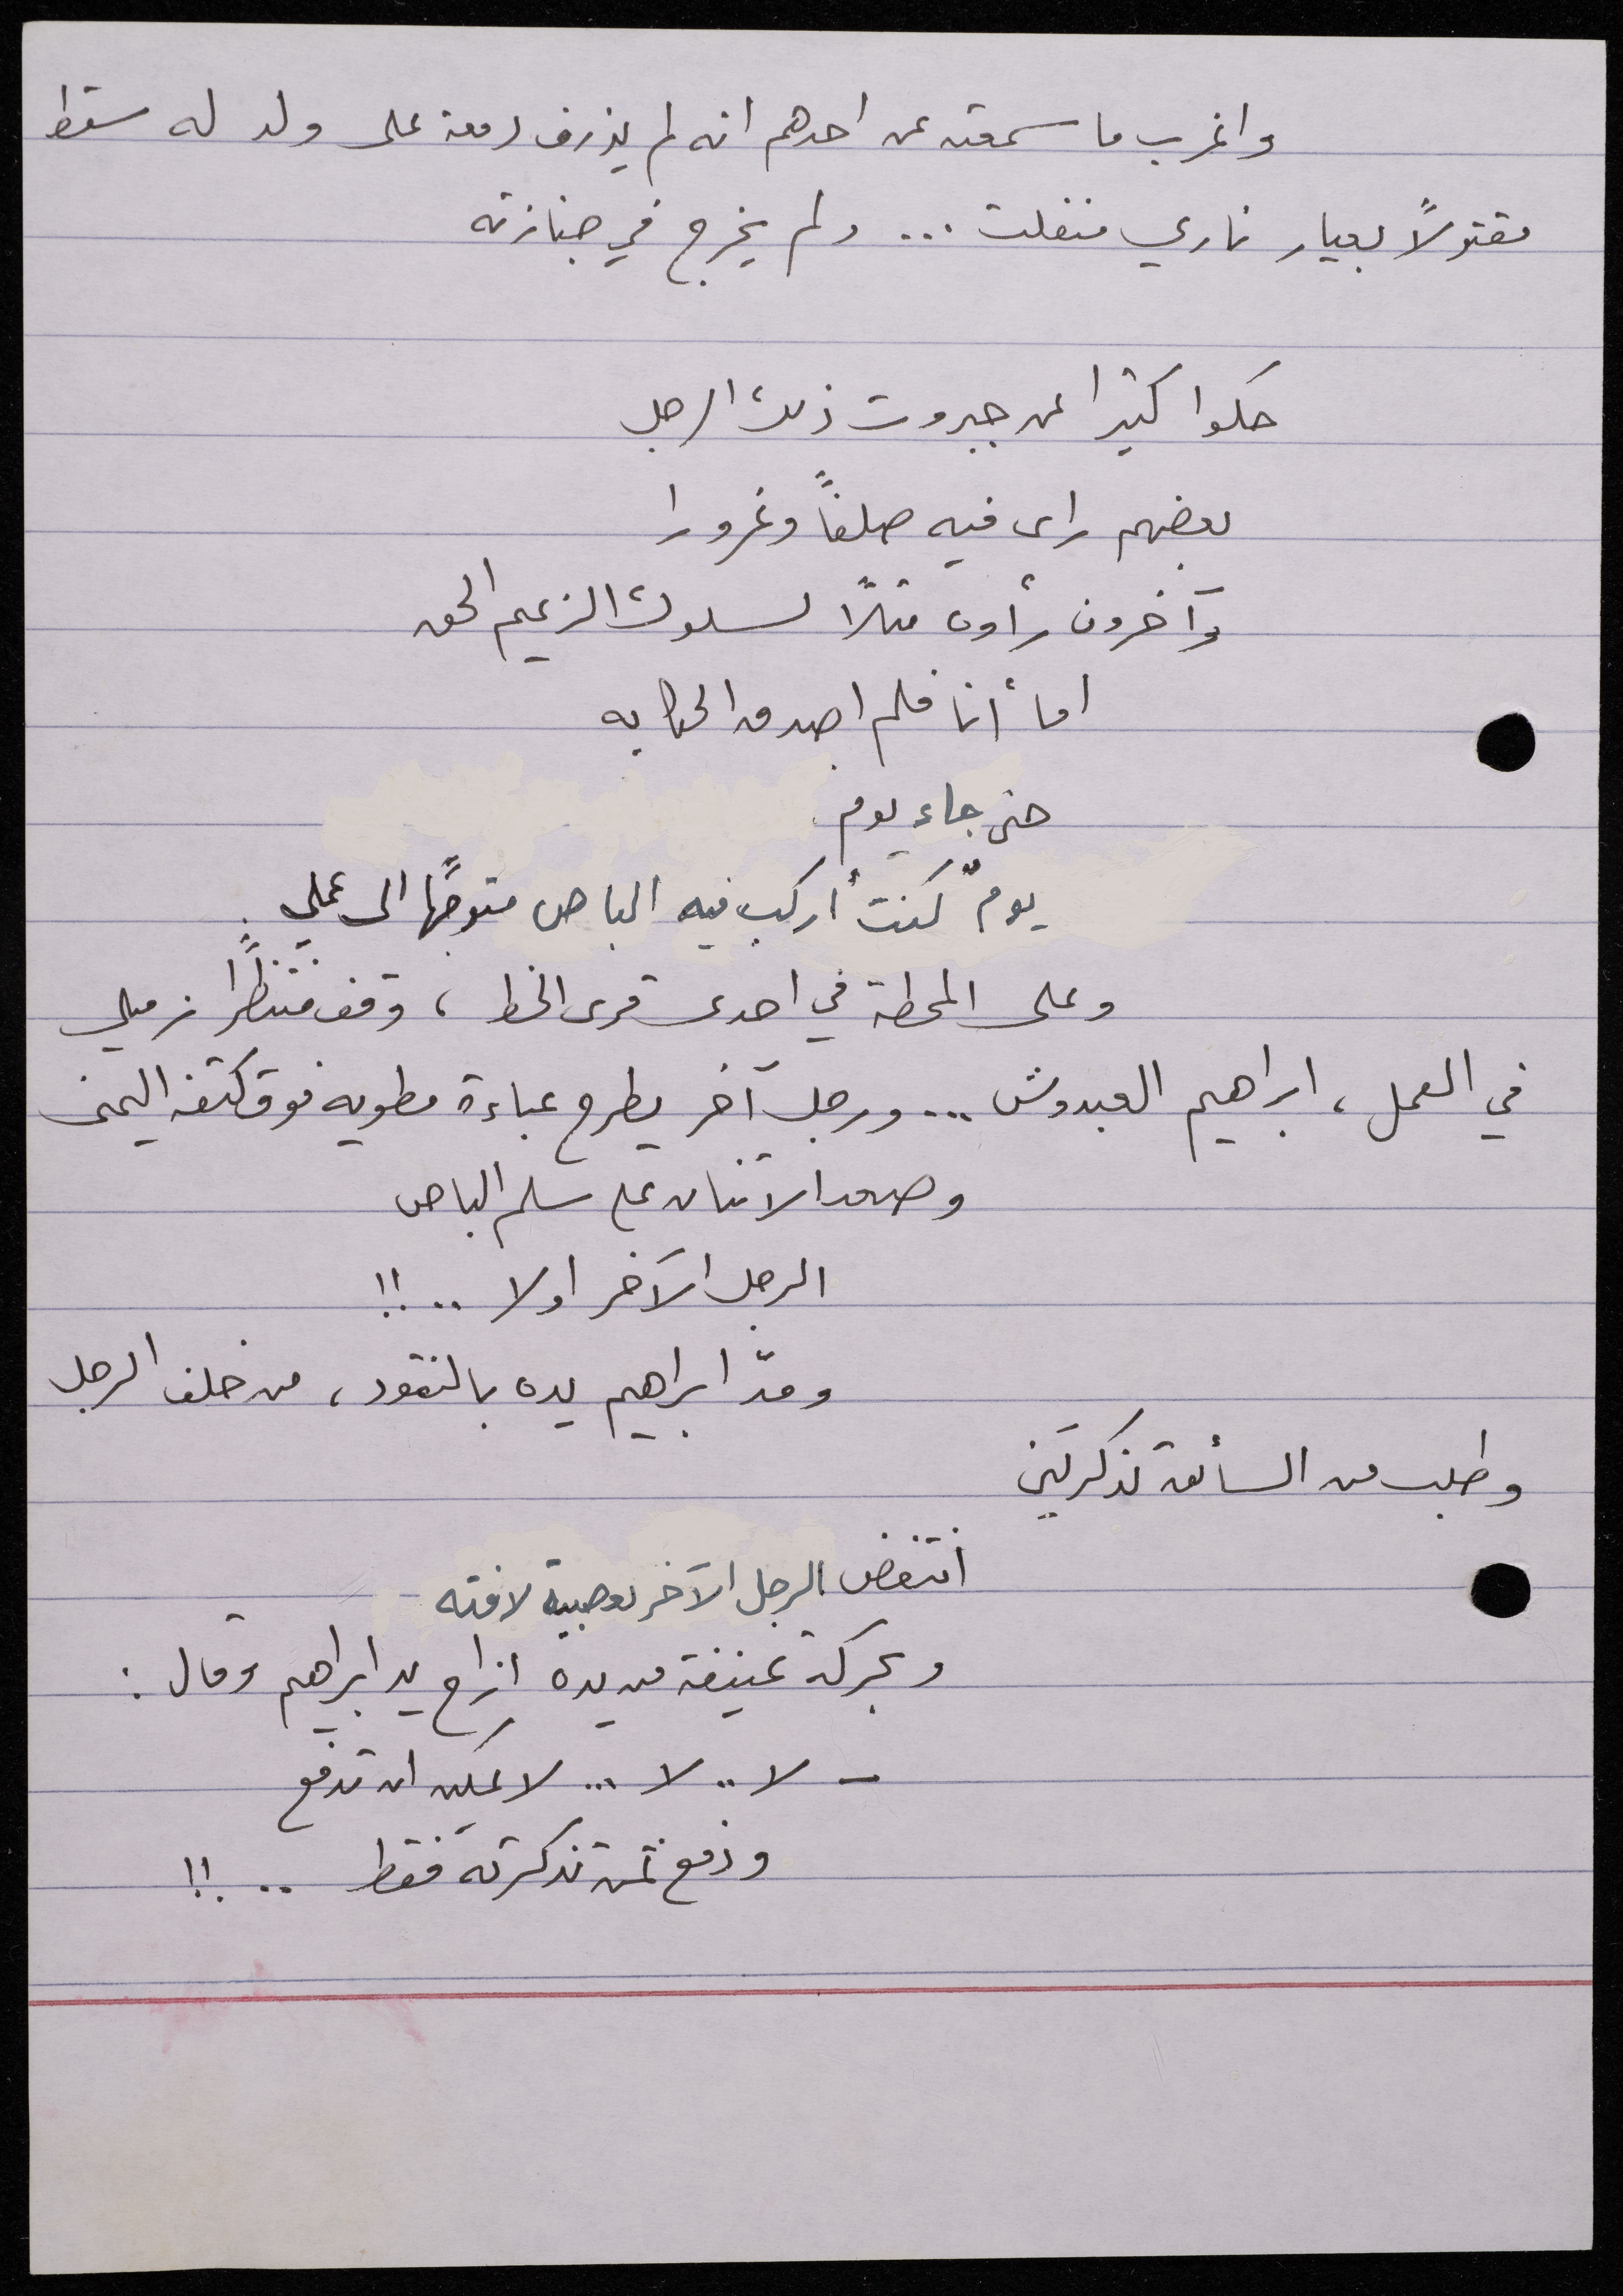 واغرب ما سمعته عن احدهم انه لم يذرف دمعة على ولد له سقط
مقتولاً بعيار ناري منفلت ... ولم يخرج في جنازته
حكوا كثيرا عن جبروت ذلك الرجل
بعضهم راى فيه صلفاً وغرورا
وآخرون رأوه مثلاً لسلوك الزعيم الحق
اما أنا فلم اصدق الحكايه
حتى جاء يوم
يومٌ كنت أركب فيه الباص متوجهًا الى عملي.
وعلى المحطة في احدى قرى الخط ، وقف منتظرًا زميلي
في العمل ، ابراهيم العبدوش ... ورجل آخر يطرح عباءة مطويه فوق كتفه اليمنى
وصعد الاثنان على سلم الباص
الرجل الآخر اولا ..!!
ومدّ ابراهيم يده بالنقود ، من خلف الرجل
وطلب من السائق تذكرتين
انتفض الرجل الآخر بعصبية لافته
وبحركة عنيفة من يده ازاح يد ابراهيم وقال :
- لا .. لا ... لا يمكن ان تدفع
ودفع ثمن تذكرته فقط ..!!